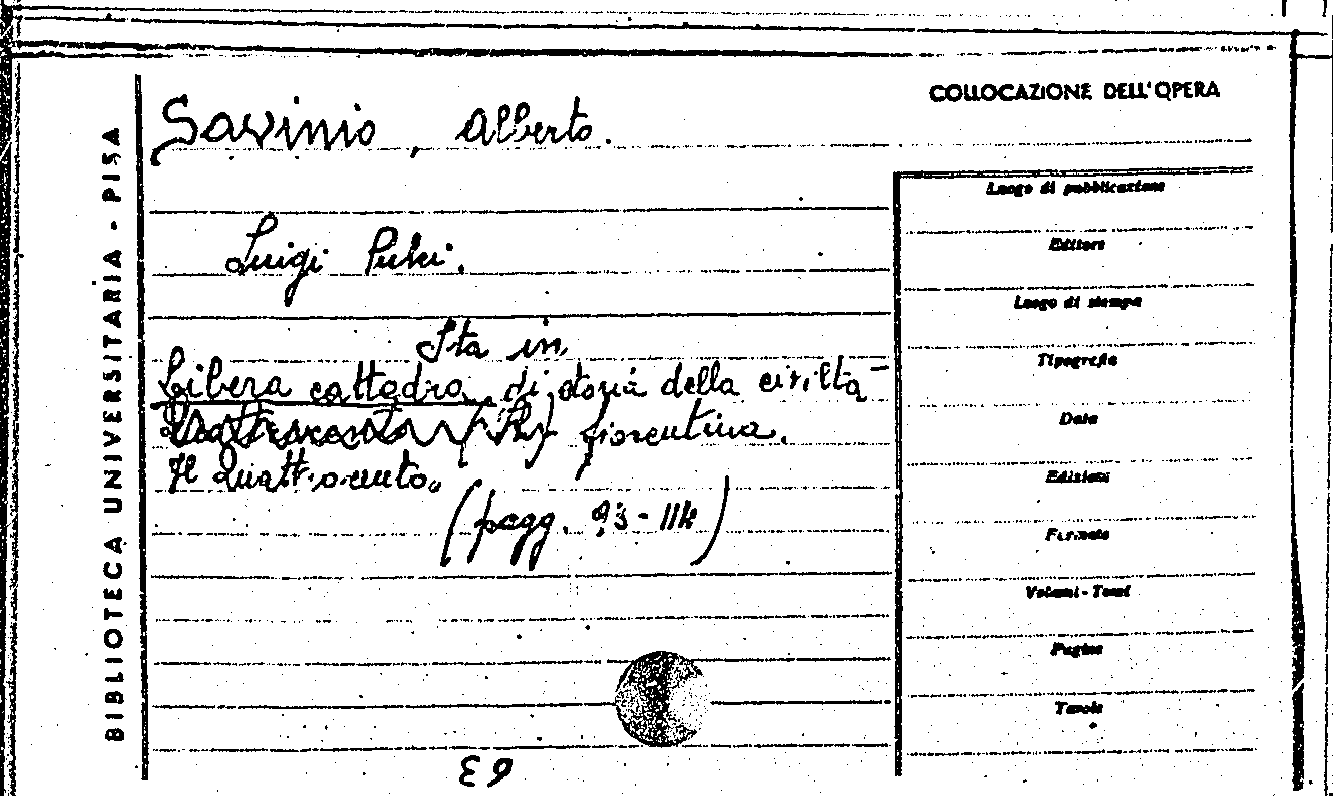 COLLOCAZIONE DELL'OPERA
Savinio, Alberto.
Luigi Pulci.
Sta in
Libera cattedra di storia della civiltà
fiorentina.
Il Quattrocento.
(pagg.
BIBLIOTECA UNIVERSITARIA - PISA
Luogo di pubblicazione
Editore
Luogo di stampa
Tipografia
Data
Edizioni
Formato
Volumi - Tomi
Pagine
Tavole